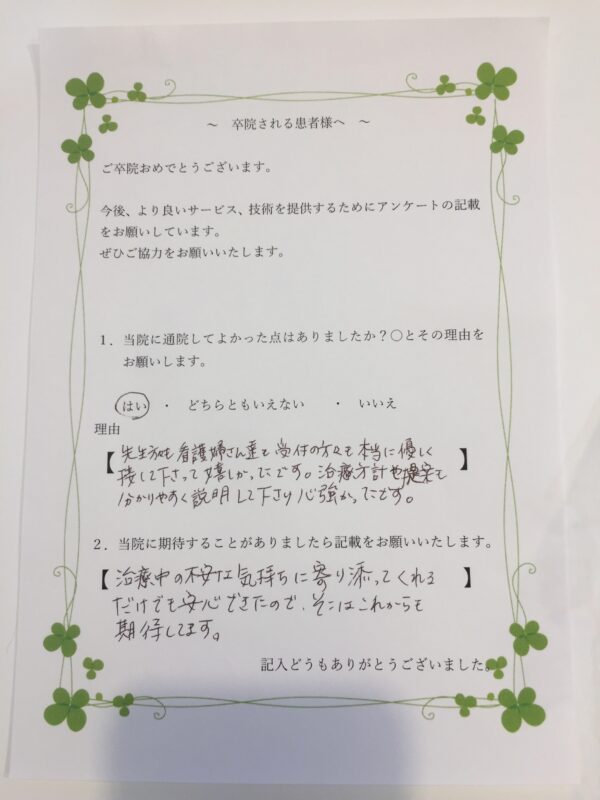 ～ 卒院される患者様へ ～
ご卒院おめでとうございます。
今後、より良いサービス、技術を提供するためにアンケートの記載
をお願いしています。
ぜひご協力をお願いいたします。
1．当院に通院してよかった点はありましたか？○とその理由を
お願いします。
はい ・ どちらともいえない ・ いいえ
理由
【先生方も看護婦さん達も受付の方々も本当に優しく
接して下さって嬉しかったです。治療方針や提案も
分かりやすく説明して下さり心強かったです。】
2．当院に期待することがありましたら記載をお願いいたします。
【治療中の不安な気持ちに寄り添ってくれる
だけでも安心できたので、そこはこれからも
期待してます。】
記入どうもありがとうございました。